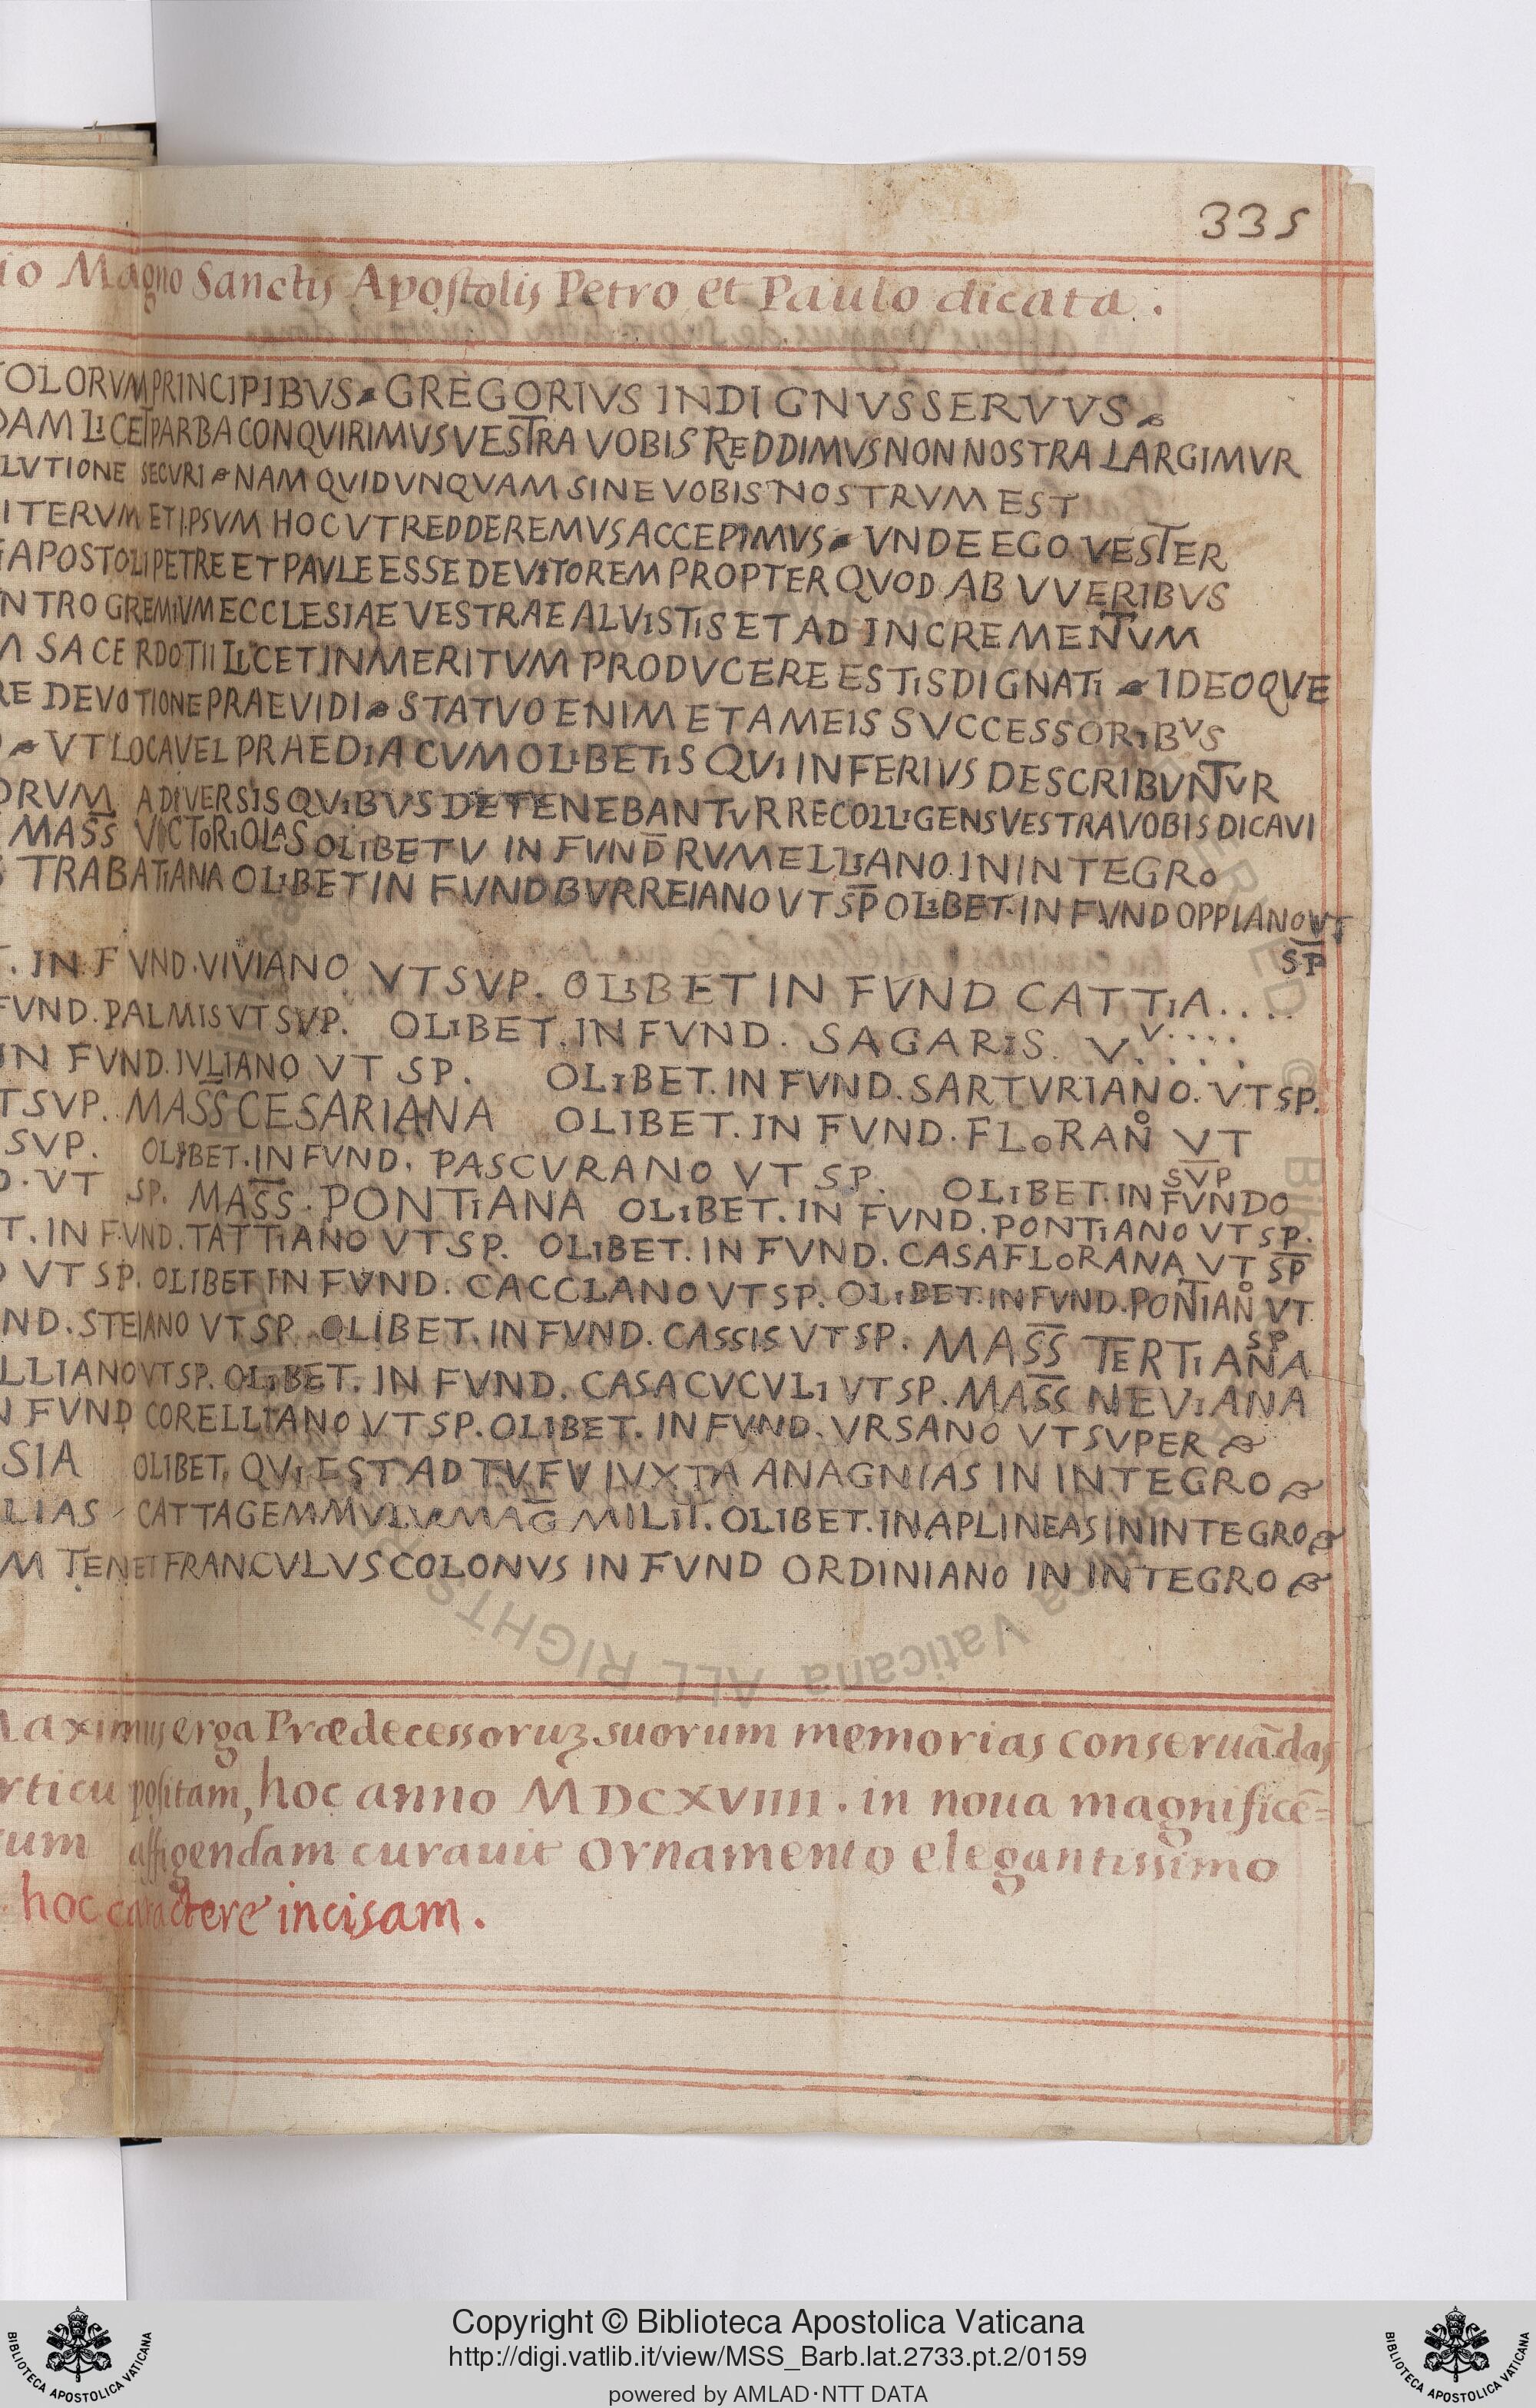 335
io Magno Sanctis Apostolis Petro et Paulo dicata.
TOLORVM PRINCIPIBVS GREGORIVS INDIGNVS SERVVS
DAM LICET PARBA CONQVIRIMVS VESTRA VOBIS REDDIMVS NON NOSTRA LARGIMVR
LVTIONE SECVRI NAM QVID VNQVAM SINE VOBIS NOSTRVM EST
ITERVM ET IPSVM HOC VT REDDEREMVS ACCEPIMVS VNDE EGO VESTER
APOSTOLI PETRE ET PAVLE ESSE DEVITOREM PROPTER QVOD AB VVERIBVS
NTRO GREMIVM ECCLESIAE VESTRAE ALVISTIS ET AD INCREMENTVM
M SACERDOTII LICET INMERITVM PRODVCERE ESTIS DIGNATI IDEOQVE
RE DEVOTIONE PRAEVIDI STATVO ENIM ET A MEIS SVCCESSORIBVS
VT LOCA VEL PRAEDIA CVM OLIBETIS QVI INFERIVS DESCRIBVNTVR
ORVM A DIVERSIS QVIBVS DETENEBANTVR RECOLLIGENS VESTRA VOBIS DICAVI
MASS VICTORIOLAS OLIBETV IN FVND RVMELLIANO IN INTEGRO
S TRABATIANA OLIBET IN FVND BVRREIANO VT SP OLIBET. IN FVND OPPIANO VT
SP
T. IN FVND. VIVIANO VT SVP. OLIBET IN FVND CATTIA....
FVND. PALMIS VT SVP. OLIBET. IN FVND. SAGARIS. V.
IN FVND. IVLIANO VT SP. OLIBET. IN FVND. SARTVRIANO. VT SP.
T SVP. MASS CESARIANA OLIBET. IN FVND. FLORANO VT
SVP
SVP. OLIBET. IN FVND. PASCVRANO VT SP. OLIBET. IN FVNDO
O. VT SP. MASS. PONTIANA OLIBET. IN FVND. PONTIANO VT SP.
T. IN FVND. TATTIANO VT SP. OLIBET. IN FVND. CASAFLORANA VT SP
O VT SP. OLIBET IN FVND. CACCIANO VT SP. OLIBET. IN FVND. PONTIANO VT.
SP
ND. STEIANO VT SP. OLIBET. IN FVND. CASSIS VT SP. MASS TERTIANA
LLIANO VT SP. OLIBET. IN FVND. CASA CVCVLI VT SP. MASS NEVIANA
N FVND CORELLIANO VT SP. OLIBET. IN FVND. VRSANO VT SVPER
SIA OLIBET. QVI EST AD TVFV IVXTA ANAGNIAS IN INTEGRO
LIAS CATTAGEMMVLVM MAG MILIT. OLIBET. IN APLINEAS IN INTEGRO
M TENET FRANCVLVS COLONVS IN FVND ORDINIANO IN INTEGRO
Maximus erga Prædecessoruʒ suorum memorias conseruādas
rticu positam, hoc anno MDCXVIIII. in noua magnificē=
rum affigendam curauit ornamento elegantissimo
hoc caractere incisam.
Copyright © Biblioteca Apostolica Vaticana
http://digi.vatlib.it/view/MSS_Barb.lat.2733.pt.2/0159
powered by AMLAD·NTT DATA
BIBLIOTECA APOSTOLICA VATICANA
BIBLIOTECA APOSTOLICA VATICANA